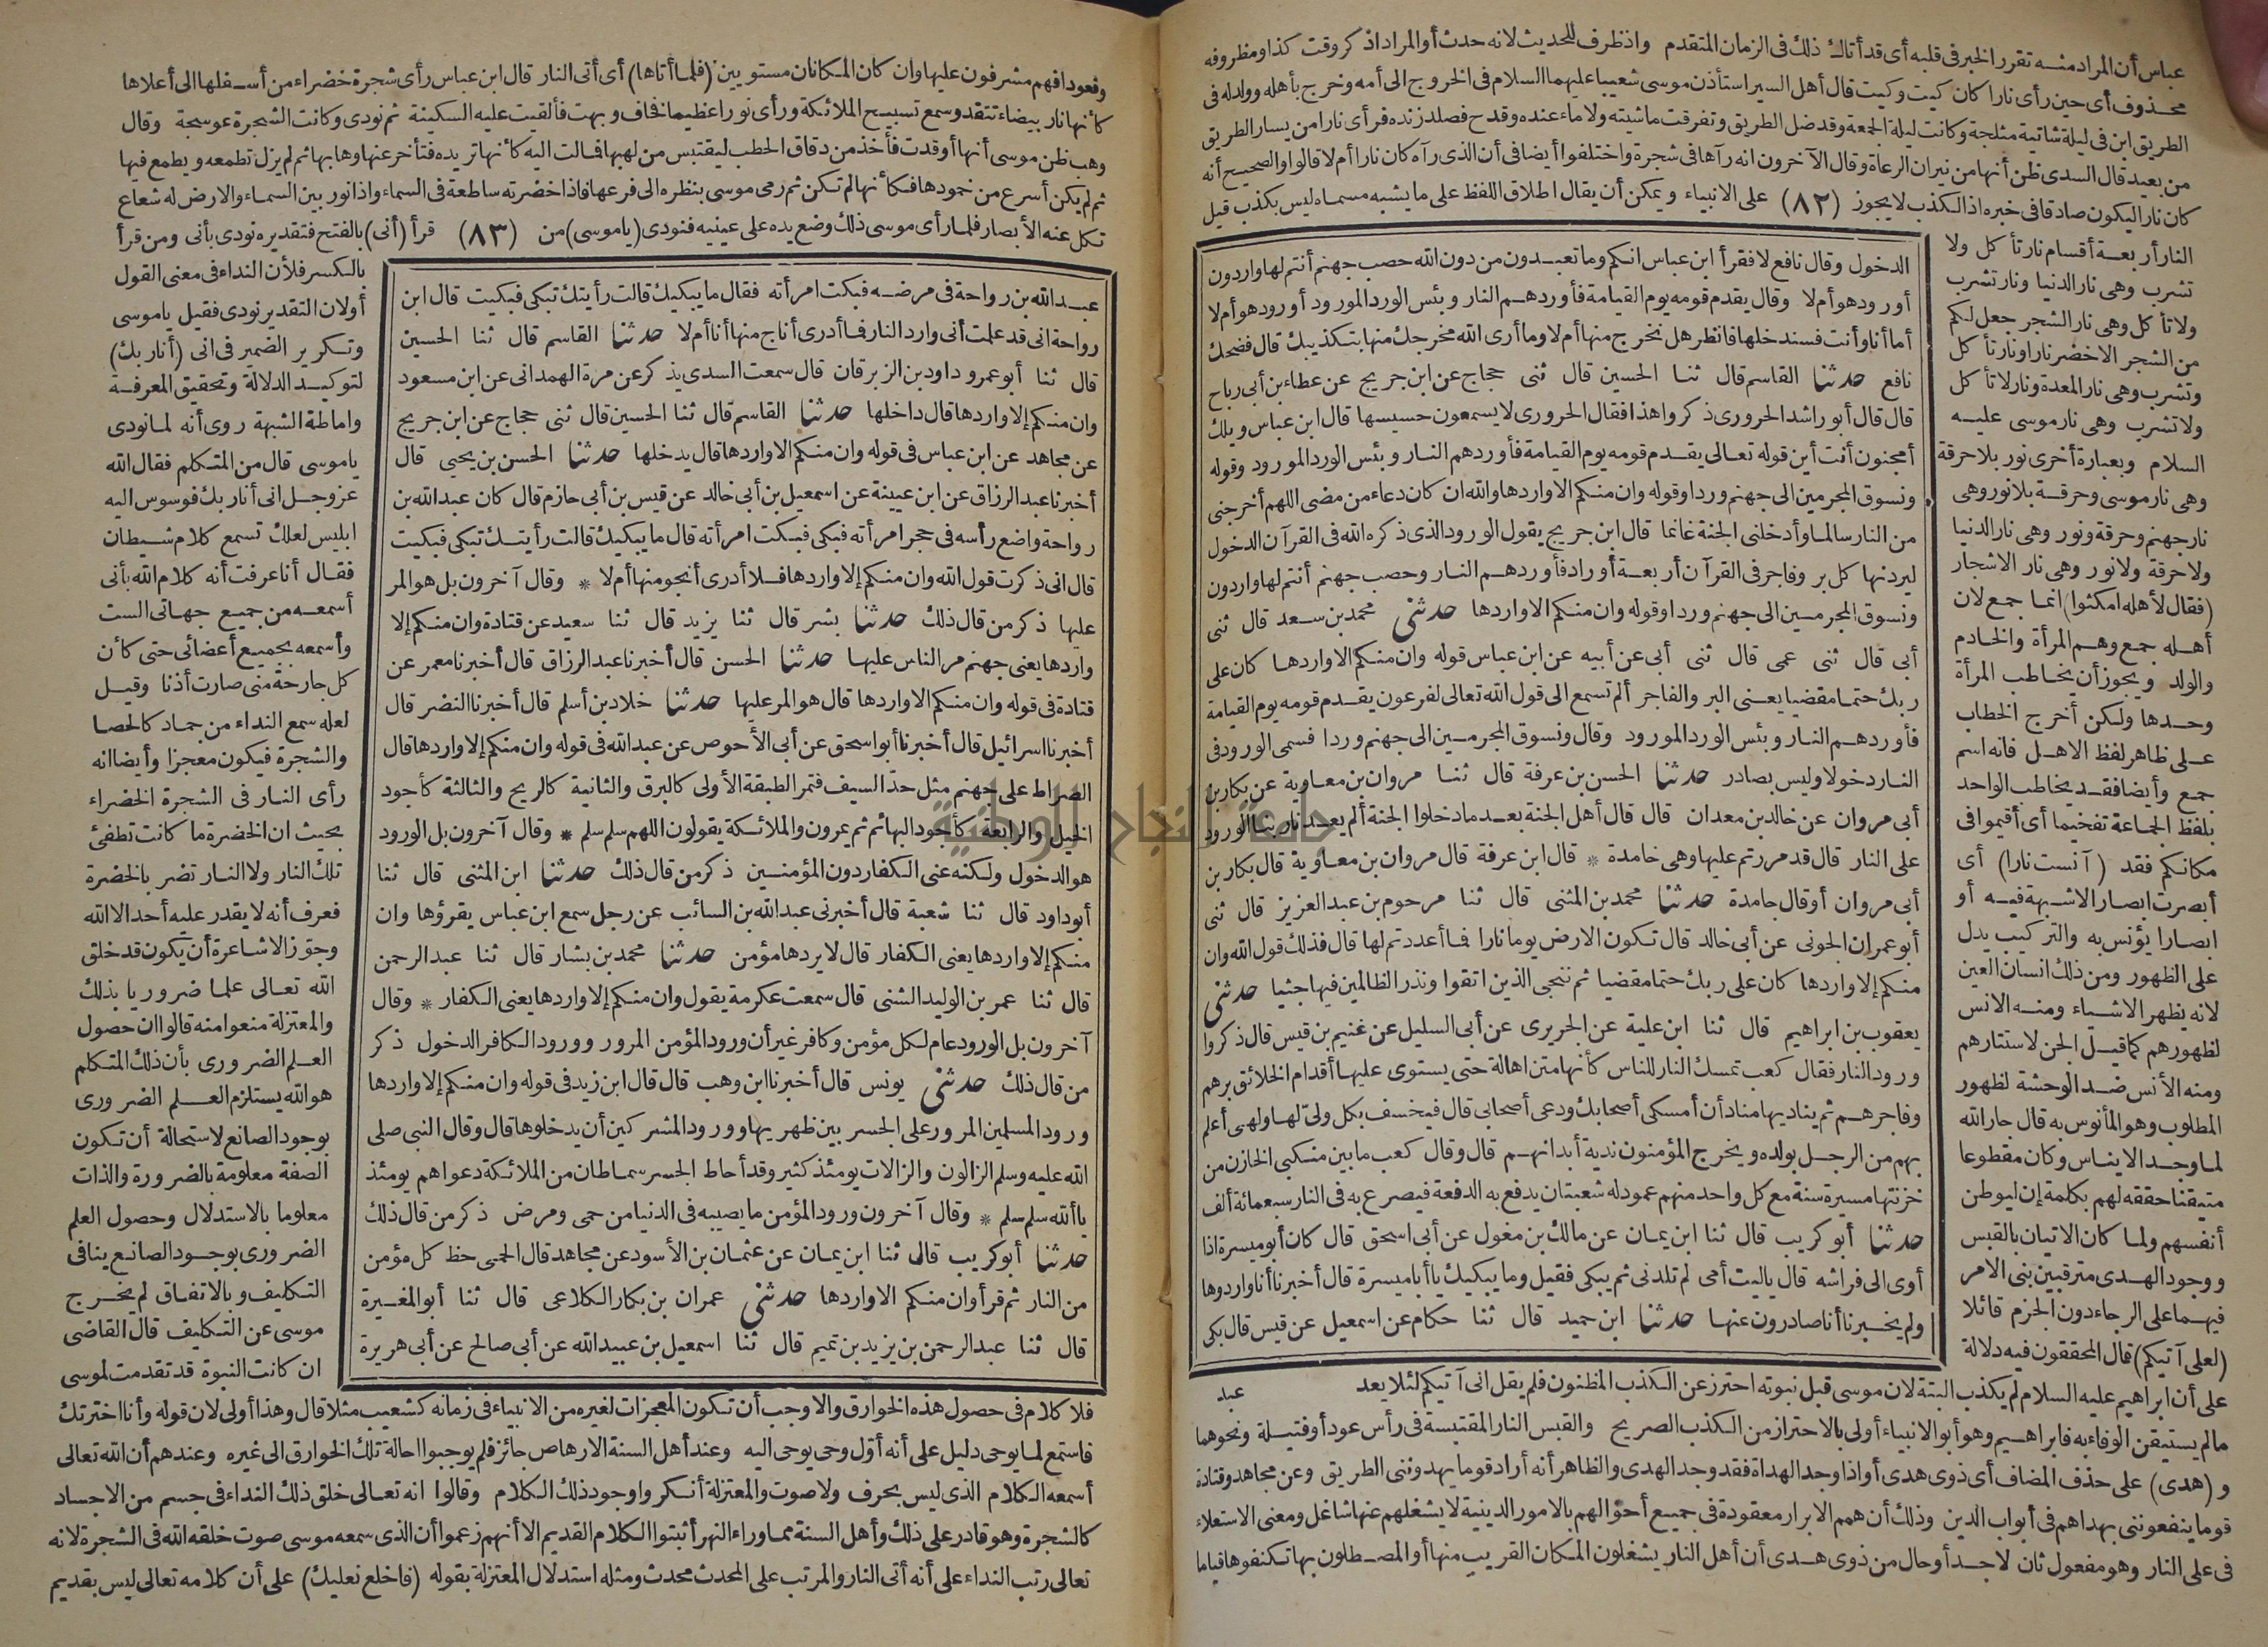 عباس أن المراد منه تقرر الخبر في قلبه أي قد أتاك ذلك في الزمان المتقدم واذ ظرف للحديث لانه حدث أو المراد اذكر وقت كذا ومظروفه
محذوف أي حين رأى نارا كان كيت وكيت قال أهل السير استأذن موسى شعيبا عليهما السلام في الخروج الى أمه وخرج بأهله وولد له في
الطريق ابن في ليلة شاتية مثلجة وكانت ليلة الجمعة وقد ضل الطريق وتفرقت ماشيته ولا ماء عنده وقدح فصلد زنده فرأى نارا من يسار الطريق
من بعيد قال السدى ظن أنها من نيران الرعاة وقال الآخرون انه رآها في شجرة واختلفوا أيضا في أن الذى رآه كان نارا أم لا قالوا والصحيح أنه
كان نارا ليكون صادقا في خبره اذ الكذب لا يجوز (٨٢) على الانبياء ويمكن أن يقال اطلاق اللفظ على ما يشبه مسماه ليس بكذب قيل
النار أربعة أقسام نار تأكل ولا
تشرب وهى نار الدنيا ونار تشرب
ولا تأكل وهى نار الشجر جعل لكم
من الشجر الاخضر نارا ونار تأكل
وتشرب وهى نار المعدة ونار لا تأكل
ولا تشرب وهى نار موسى عليه
السلام وبعبارة أخرى نور بلا حرقة
وهى نار موسى وحرقة بلا نور وهى
نار جهنم وحرقة ونور وهى نار الدنيا
ولا حرقة ولا نور وهى نار الاشجار
(فقال لأهله امكثوا) انما جمع لان
أهله جمع وهم المرأة والخادم
والولد ويجوز أن يخاطب المرأة
وحدها ولكن أخرج الخطاب
على ظاهر لفظ الاهل فانه اسم
جمع وأيضا فقد يخاطب الواحد
بلفظ الجماعة تفخيما أي أقيموا في
مكانكم فقد (آنست نارا) أي
أبصرت ابصار الا شبهة فيه أو
ابصارا يؤنس به والتركيب يدل
على الظهور ومن ذلك انسان العين
لانه يظهر الاشياء ومنه الانس
لظهورهم كما قيل الجن لاستتارهم
ومنه الأنس ضد الوحشة لظهور
المطلوب وهو المأنوس به قال جار الله
لما وجد الايناس وكان مقطوعا
متيقنا حققه لهم بكلمة إن ليوطن
أنفسهم ولما كان الاتيان بالقبس
ووجود الهدى مترقبين بنى الامر
فيهما على الرجاء دون الجزم قائلا
(لعلى آتيكم) قال المحققون فيه دلالة
الدخول وقال نافع لا فقرأ ابن عباس انكم وما تعبدون من دون الله حصب جهنم أنتم لها واردون
أورود هو أم لا وقال يقدم قومه يوم القيامة فأوردهم النار وبئس الورد المورود أورود هو أم لا
أما أنا وأنت فسندخلها فانظر هل نخرج منها أم لا وما أرى الله مخرجك منها بتكذيبك قال فضحك
نافع حدثنا القاسم قال ثنا الحسين قال ثنى حجاج عن ابن جريج عن عطاء بن أبى رباح
قال قال أبو راشد الحرورى ذكروا هذا فقال الحرورى لا يسمعون حسيسها قال ابن عباس ويلك
أمجنون أنت أين قوله تعالى يقدم قومه يوم القيامة فأوردهم النار وبئس الورد المورود وقوله
ونسوق المجرمين الى جهنم وردا وقوله وان منكم الا واردها والله ان كان دعاء من مضى اللهم أخرجنى
من النار سالما وأدخلنى الجنة غانما قال ابن جريج يقول الورود الذى ذكره الله في القرآن الدخول
ليردنها كل بر وفاجر في القرآن أربعة أوراد فأوردهم النار وحصب جهنم أنتم لها واردون
ونسوق المجرمين الى جهنم وردا وقوله وان منكم الا واردها حدثنى محمد بن سعد قال ثنى
أبى قال ثنى عمى قال ثنى أبى عن أبيه عن ابن عباس قوله وان منكم الا واردها كان على
ربك حتما مقضيا يعنى البر والفاجر ألم تسمع الى قول الله تعالى لفرعون يقدم قومه يوم القيامة
فأوردهم النار وبئس الورد المورود وقال ونسوق المجرمين الى جهنم وردا فسمى الورود في
النار دخولا وليس بصادر حدثنا الحسن بن عرفة قال ثنا مروان بن معاوية عن بكار بن
أبى مروان عن خالد بن معدان قال قال أهل الجنة بعد ما دخلوا الجنة ألم يعدنا ربنا الورود
على النار قال قد مررتم عليها وهى خامدة * قال ابن عرفة قال مروان بن معاوية قال بكار بن
أبى مروان أو قال جامدة حدثنا محمد بن المثنى قال ثنا مرحوم بن عبد العزيز قال ثنى
أبو عمران الجونى عن أبى خالد قال تكون الارض يوما نارا فما أعددتم لها قال فذلك قول الله وان
منكم إلا واردها كان على ربك حتما مقضيا ثم ننجى الذين اتقوا ونذر الظالمين فيها جثيا حدثنى
يعقوب بن ابراهيم قال ثنا ابن علية عن الجريرى عن أبى السليل عن غنيم بن قيس قال ذكروا
ورود النار فقال كعب تمسك النار للناس كأنها متن اهالة حتى يستوى عليها أقدام الخلائق برهم
وفاجرهم ثم يناديها مناد أن أمسكى أصحابك ودعى أصحابى قال فيخسف بكل ولىّ لها ولهى أعلم
بهم من الرجل بولده ويخرج المؤمنون ندية أبدانهم قال وقال كعب ما بين منكبى الخازن من
خزنتها مسيرة سنة مع كل واحد منهم عمود له شعبتان يدفع به الدفعة فيصرع به في النار سبعمائة ألف
حدثنا أبو كريب قال ثنا ابن يمان عن مالك بن مغول عن أبى اسحق قال كان أبو ميسرة اذا
أوى الى فراشه قال ياليت أمى لم تلدنى ثم يبكى فقيل وما يبكيك يا أبا ميسرة قال أخبرنا أنا واردوها
ولم يخبرنا أنا صادرون عنها حدثنا ابن حميد قال ثنا حكام عن اسمعيل عن قيس قال بكى
على أن ابراهيم عليه السلام لم يكذب البتة لان موسى قبل نبوته احترز عن الكذب المظنون فلم يقل انى آتيكم لئلا يعد
عبد
مالم يستيقن الوفاء به فابراهيم وهو أبو الانبياء أولى بالاحتراز من الكذب الصريح والقبس النار المقتبسة في رأس عود أو فتيلة ونحوهما
و (هدى) على حذف المضاف أي ذوى هدى أو اذا وجد الهداة فقد وجد الهدى والظاهر أنه أراد قوما يهدوننى الطريق وعن مجاهد وقتادة
قوما ينفعوننى بهداهم في أبواب الدين وذلك أن همم الابرار معقودة في جميع أحوالهم بالامور الدينية لا يشغلهم عنها شاغل ومعنى الاستعلاء
في على النار وهو مفعول ثان لاجد أو حال من ذوى هدى أن أهل النار يشغلون المكان القريب منها أو المصطلون بها تكنفوها قياما
وقعودا فهم مشرفون عليها وان كان المكانان مستويين (فلما أتاها) أي أتى النار قال ابن عباس رأى شجرة خضراء من أسفلها الى أعلاها
كأنها نار بيضاء تتقد وسمع تسبيح الملائكة ورأى نورا عظيما فخاف وبهت فألقيت عليه السكينة ثم نودى وكانت الشجرة عوسجة وقال
وهب ظن موسى أنها أوقدت فأخذ من دقاق الحطب ليقتبس من لهبها فمالت اليه كأنها تريده فتأخر عنها وهابها ثم لم يزل تطمعه ويطمع فيها
ثم لم يكن أسرع من خمودها فكأنها لم تكن ثم رمى موسى بنظره الى فرعها فاذا خضرته ساطعة في السماء واذا نور بين السماء والارض له شعاع
تكل عنه الأبصار فلما رأى موسى ذلك وضع يده على عينيه فنودى (ياموسى) من (٨٣) قرأ (أنى) بالفتح فتقديره نودى بأنى ومن قرأ
عبد الله بن رواحة في مرضه فبكت امرأته فقال ما يبكيك قالت رأيتك تبكى فبكيت قال ابن
رواحة انى قد علمت أنى وارد النار فما أدرى أناج منها أنا أم لا حدثنا القاسم قال ثنا الحسين
قال ثنا أبو عمرو داود بن الزبرقان قال سمعت السدى يذكر عن مرة الهمدانى عن ابن مسعود
وان منكم إلا واردها قال داخلها حدثنا القاسم قال ثنا الحسين قال ثنى حجاج عن ابن جريج
عن مجاهد عن ابن عباس في قوله وان منكم الا واردها قال يدخلها حدثنا الحسن بن يحيى قال
أخبرنا عبد الرزاق عن ابن عيينة عن اسمعيل بن أبى خالد عن قيس بن أبى حازم قال كان عبد الله بن
رواحة واضع رأسه في حجر امرأته فبكى فبكت امرأته قال ما يبكيك قالت رأيتك تبكى فبكيت
قال انى ذكرت قول الله وان منكم إلا واردها فلا أدرى أنجو منها أم لا * وقال آخرون بل هو المر
عليها ذكر من قال ذلك حدثنا بشر قال ثنا يزيد قال ثنا سعيد عن قتادة وان منكم إلا
واردها يعنى جهنم مر الناس عليها حدثنا الحسن قال أخبرنا عبد الرزاق قال أخبرنا معمر عن
قتادة في قوله وان منكم الا واردها قال هو المر عليها حدثنا خلاد بن أسلم قال أخبرنا النضر قال
أخبرنا اسرائيل قال أخبرنا أبو اسحق عن أبى الأحوص عن عبد الله في قوله وان منكم إلا واردها قال
الصراط على جهنم مثل حدّ السيف فتمر الطبقة الأولى كالبرق والثانية كالريح والثالثة كأجود
الخيل والرابعة كأجود البهائم ثم يمرون والملائكة يقولون اللهم سلم سلم * وقال آخرون بل الورود
هو الدخول ولكنه عنى الكفار دون المؤمنين ذكر من قال ذلك حدثنا ابن المثنى قال ثنا
أبو داود قال ثنا شعبة قال أخبرنى عبد الله بن السائب عن رجل سمع ابن عباس يقرؤها وان
منكم إلا واردها يعنى الكفار قال لا يردها مؤمن حدثنا محمد بن بشار قال ثنا عبد الرحمن
قال ثنا عمر بن الوليد الشنى قال سمعت عكرمة يقول وان منكم إلا واردها يعنى الكفار * وقال
آخرون بل الورود عام لكل مؤمن وكافر غير أن ورود المؤمن المرور وورود الكافر الدخول ذكر
من قال ذلك حدثنى يونس قال أخبرنا ابن وهب قال قال ابن زيد في قوله وان منكم إلا واردها
ورود المسلمين المرور على الجسر بين ظهريها وورود المشركين أن يدخلوها قال وقال النبى صلى
الله عليه وسلم الزالون والزالات يومئذ كثير وقد أحاط الجسر سماطان من الملائكة دعواهم يومئذ
يا ألله سلم سلم * وقال آخرون ورود المؤمن ما يصيبه في الدنيا من حمى ومرض ذكر من قال ذلك
حدثنا أبو كريب قال ثنا ابن يمان عن عثمان بن الأسود عن مجاهد قال الحمى حظ كل مؤمن
من النار ثم قرأ وان منكم الا واردها حدثنى عمران بن بكار الكلاعى قال ثنا أبو المغيرة
قال ثنا عبد الرحمن بن يزيد بن تميم قال ثنا اسمعيل بن عبيد الله عن أبى صالح عن أبى هريرة
بالكسر فلأن النداء في معنى القول
أو لان التقدير نودى فقيل ياموسى
وتكرير الضمير في انى (أنا ربك)
لتوكيد الدلالة وتحقيق المعرفة
واماطة الشبهة روى أنه لما نودى
ياموسى قال من المتكلم فقال الله
عز وجل انى أنا ربك فوسوس اليه
ابليس لعلك تسمع كلام شيطان
فقال أنا عرفت أنه كلام الله بأنى
أسمعه من جميع جهاتى الست
وأسمعه بجميع أعضائى حتى كأن
كل جارحة منى صارت أذنا وقيل
لعله سمع النداء من جماد كالحصا
والشجرة فيكون معجزا وأيضا انه
رأى النار في الشجرة الخضراء
بحيث ان الخضرة ما كانت تطفئ
تلك النار ولا النار تضر بالخضرة
فعرف أنه لا يقدر عليه أحد الا الله
وجوّز الاشاعرة أن يكون قد خلق
الله تعالى علما ضروريا بذلك
والمعتزلة منعوا منه قالوا ان حصول
العلم الضرورى بأن ذلك المتكلم
هو الله يستلزم العلم الضرورى
بوجود الصانع لاستحالة أن تكون
الصفة معلومة بالضرورة والذات
معلوما بالاستدلال وحصول العلم
الضرورى بوجود الصانع ينافى
التكليف وبالاتفاق لم يخرج
موسى عن التكليف قال القاضى
ان كانت النبوة قد تقدمت لموسى
فلا كلام في حصول هذه الخوارق والا وجب أن تكون المعجزات لغيره من الانبياء في زمانه كشعيب مثلا قال وهذا أولى لان قوله وأنا اخترتك
فاستمع لما يوحى دليل على أنه أوّل وحى يوحى اليه وعند أهل السنة الارهاص جائز فلم يوجبوا احالة تلك الخوارق الى غيره وعندهم أن الله تعالى
أسمعه الكلام الذى ليس بحرف ولا صوت والمعتزلة أنكروا وجود ذلك الكلام وقالوا انه تعالى خلق ذلك النداء في جسم من الاجساد
كالشجرة وهو قادر على ذلك وأهل السنة مما وراء النهر أثبتوا الكلام القديم الا أنهم زعموا أن الذى سمعه موسى صوت خلقه الله في الشجرة لانه
تعالى رتب النداء على أنه أتى النار والمرتب على المحدث محدث ومثله استدلال المعتزلة بقوله (فاخلع نعليك) على أن كلامه تعالى ليس بقديم
جامعة النجاح الوطنية